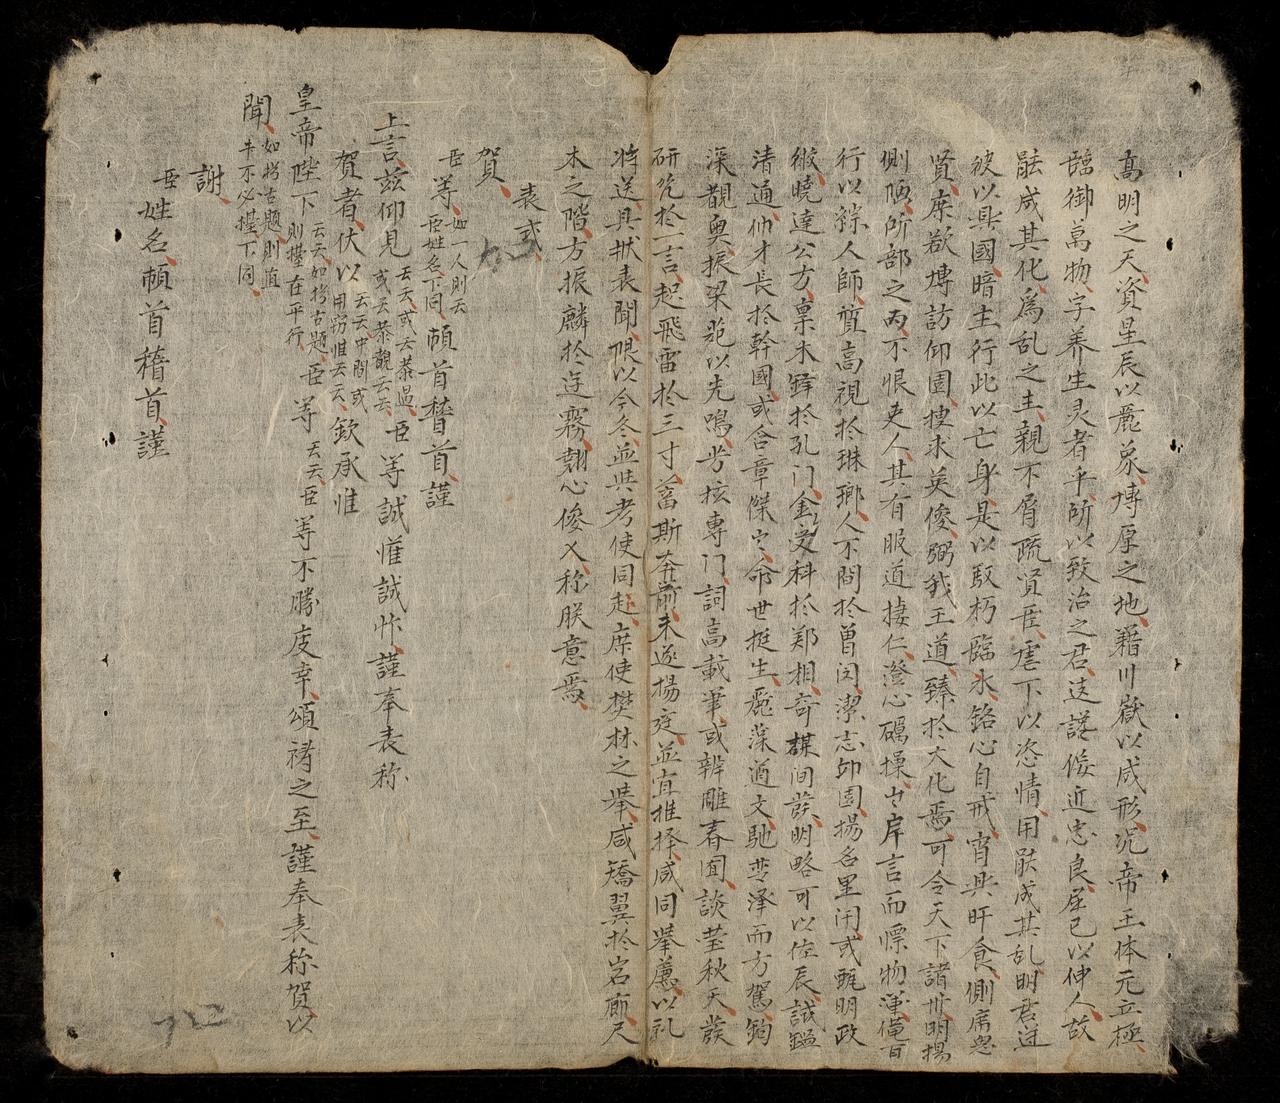 高明之天資星辰以麗象博厚之地籍川嶽以成形況帝王体元立極
臨御萬物字養生灵者乎所以致治之君遠諂佞近忠良屈已以伸人故
能成其化為乱之主親不肖疏賢臣虐下以恣情用能成其乱明君遵
彼以興國暗主行此以亡身是以馭朽臨氷銘心自戒宵興旰食側席思
賢庶欲博訪仰園搜求英俊弼我王道臻於大化焉可令天下諸州明揚
側陋所部之內不恨吏人其有服道棲仁澄心礪操出岸言而慓物蘊百
行以綜人師質高視於琳瑯人不間於曾閔潔志丘園揚名里閈或甄明政
術曉達公方稟木鐸於孔门金文科於郑相奇謀间發明略可以佐辰識鑒
清通伸才長於幹國或含章傑出命世挺生麗藻遒文馳楚泽而方駕鉤
深覩奥振梁苑以先鳴考核專门詞高載筆或辨雕春囿談瑩秋天發
研究於一言起飛雷於三寸蓄斯奔前未遂揚庭並宜推择咸同舉薦以礼
將送具狀表聞限以今冬並與考使同赴庶使樊林之舉咸矯翼於岩廊尺
木之階方振麟於遥霧翹心俊乂称朕意焉
表式
賀
臣等如一人則云臣姓名下同頓首稽首謹
上言茲仰見云云或云恭遇或云恭覩云云臣等誠惟誠忭謹奉表称
賀者伏以云云中間或用窃惟云云欽承惟
皇帝陛下云云如拷古題則擡在平行臣等云云臣等不勝庋幸頌禱之至謹奉表称賀以
聞如拷古題則直牛不必擡下同
謝
臣姓名頓首稽首謹